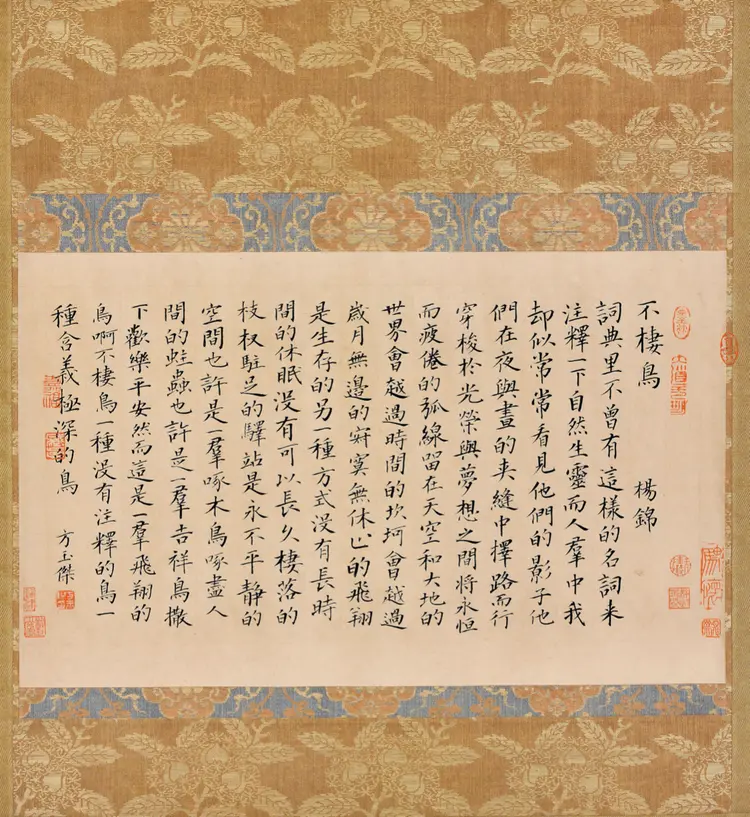 不棲鳥 楊錦
詞典里不曾有這樣的名詞来
注釋一下自然生靈而人羣中我
却似常常看見他們的影子他
們在夜與晝的夹縫中擇路而行
穿梭於光榮與夢想之間將永恒
而疲倦的弧線留在天空和大地的
世界會越過時間的坎坷會越過
歲月無邊的寂寞無休止的飛翔
是生存的另一種方式沒有長時
間的休眠沒有可以長久棲落的
枝杈駐足的驛站是永不平静的
空間也許是一羣啄木鳥啄盡人
間的蛀蟲也許是一羣吉祥鳥撒
下歡樂平安然而這是一羣飛翔的
鳥啊不棲鳥一種没有注釋的鳥一
種含義極深的鳥 方玉傑